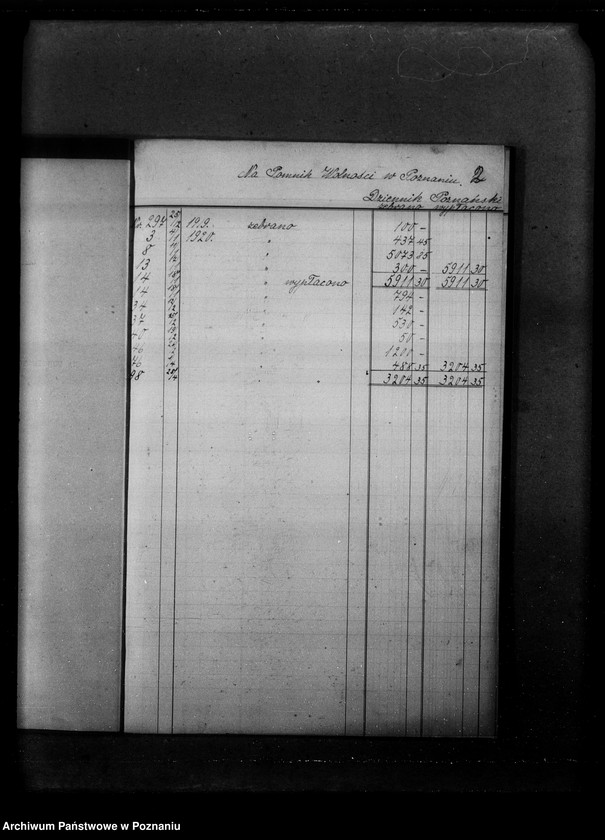 Na Pomnik Wolności w Poznaniu. 2
Dziennik Poznański
zebrano wypłacono
No. 297 25/12 1919. zebrano 100 -
3 4/1 1920. " 437 45
8 " 5073 05
13 " 300 - 5911 30
14 " wypłacono 5911 30 5911 30
14 " 794 -
34 " 142 -
37 " 530 -
" 50 -
46 " 1200 -
46 " 488 35 3204 35
98 20/14 " " 3204 35 3204 35
Archiwum Państwowe w Poznaniu